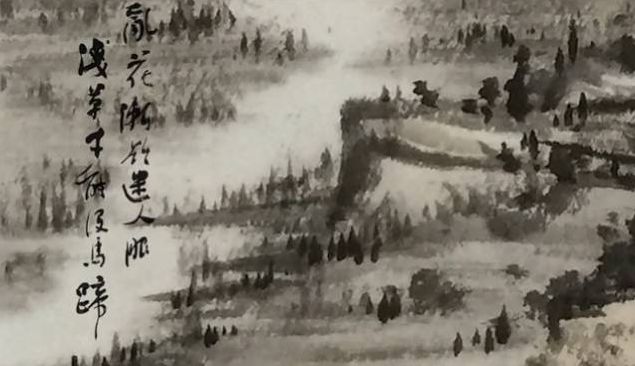 亂花漸欲迷人眼
淺草才能沒馬蹄